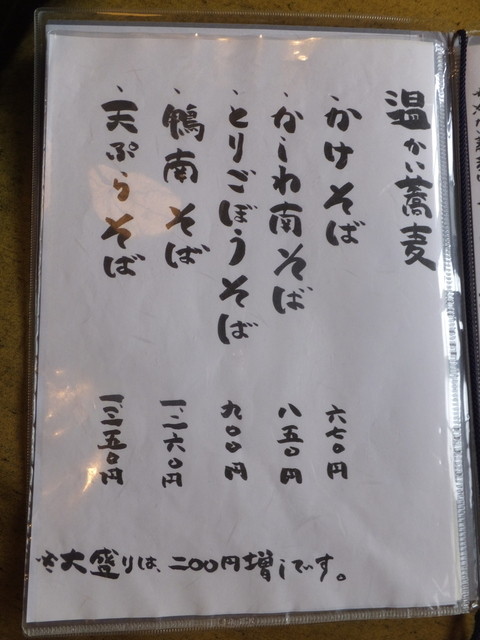 温かい蕎麦
、かけそば 六七〇円
、かしわ南そば 八五〇円
、とりごぼうそば 九〇〇円
、鴨南そば 一、二六〇円
、天ぷらそば 一、三五〇円
※大盛りは、二〇〇円増しです。